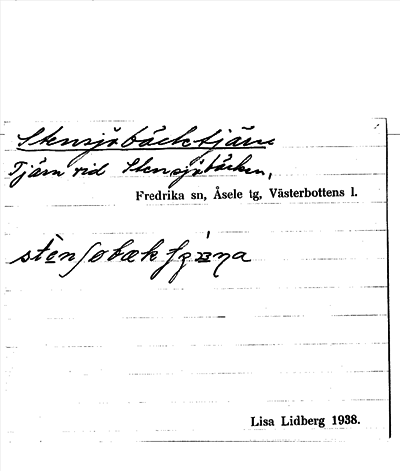 Stensjöbäcktjärn
Tjärn vid Stensjöbäcken,
Fredrika sn, Åsele tg, Västerbottens l.
Lisa Lidberg 1938.